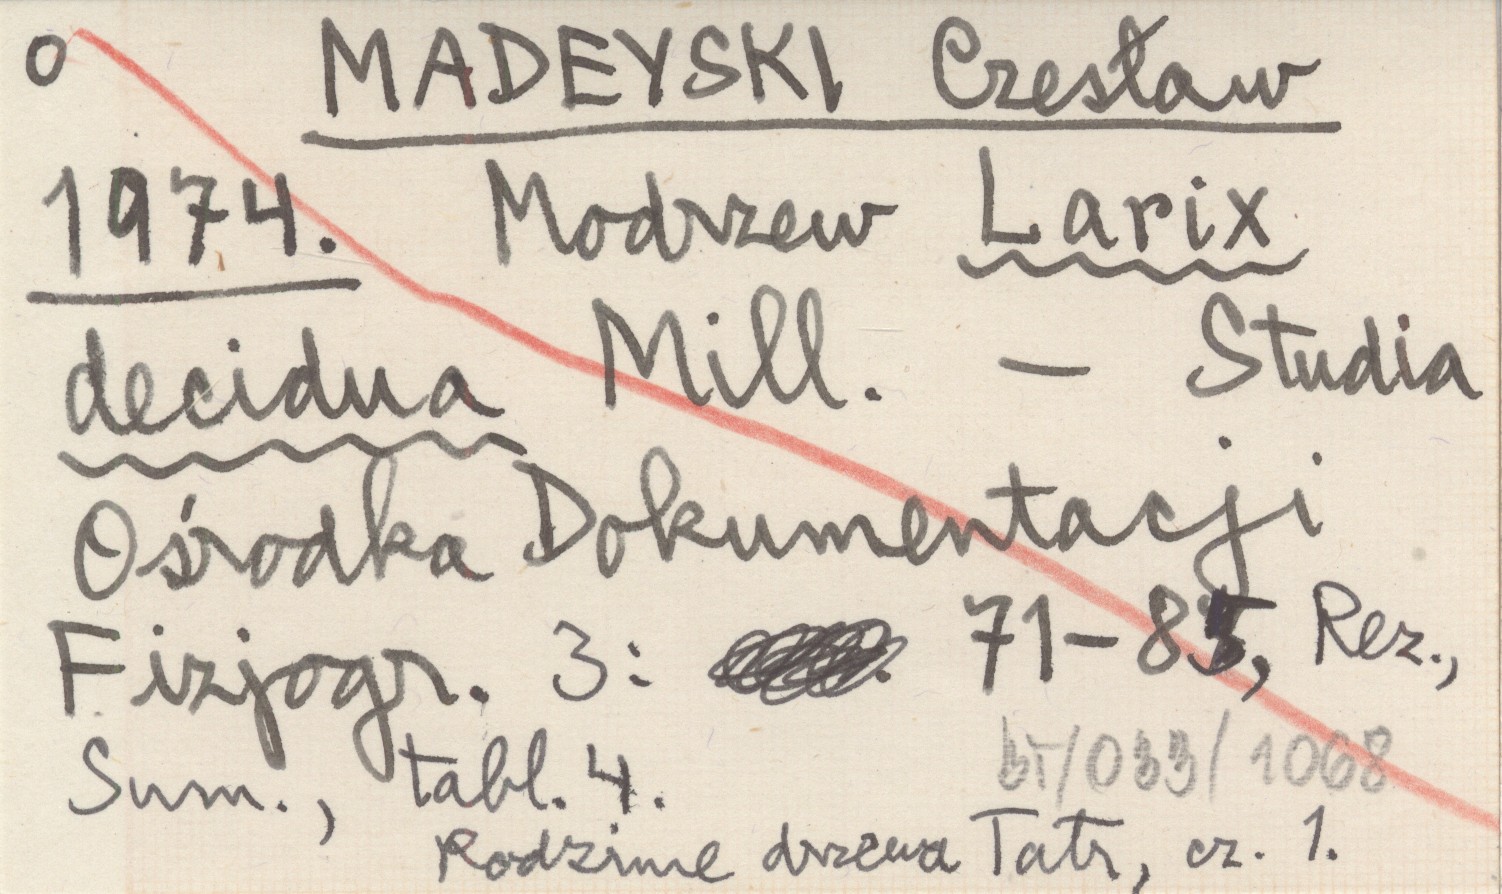 O MADEYSKI Czesław
1974. Modrzew Larix
decidua Mill. — Studia
Ośrodka Dokumentacji
Fizjogr. 3: 71-85, Rez.,
Sum., tabl. 4.
Rodzime drzewa Tatr, cz. 1.